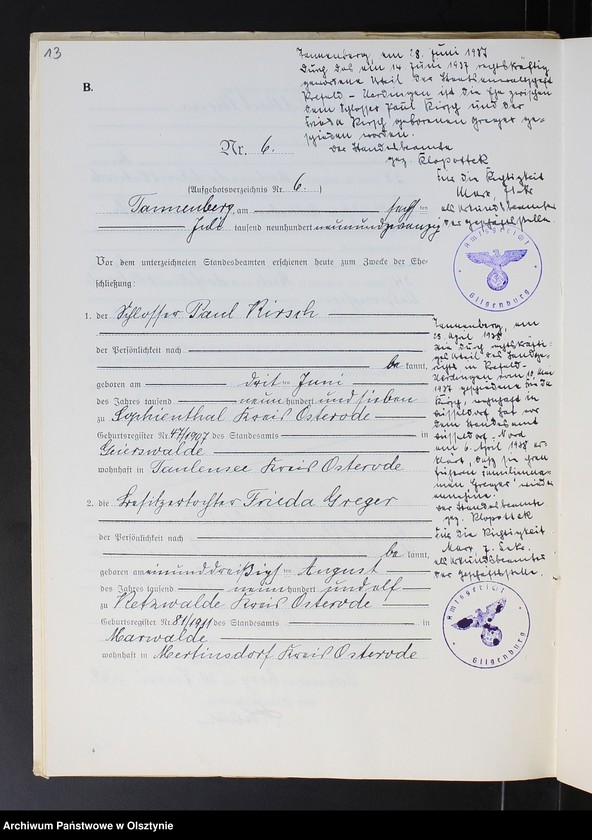 13
B.
Tannenberg, am 28. Juni 1937
Durch das am 14 Juni 1937 rechtskräftig
gewordene Urteil
Krefeld-Uerdingen ist die Ehe zwischen
dem Schlosser Paul Kirsch und der
Frieda Kirsch geborenen Greger ge-
schieden worden.
Der Standesbeamte
gez. Klopottek
Für die Richtigkeit
als Urkundsbeamter
der Geschäftsstelle.
Amtsgericht
Gilgenburg
Nr. 6.
(Aufgebotsverzeichnis Nr. 6.)
Tannenberg, am ten
Juli tausend neunhundert neunundzwanzig
Vor dem unterzeichneten Standesbeamten erschienen heute zum Zwecke der Ehe-
schließung:
1. der Schlosser Paul Kirsch
der Persönlichkeit nach
be kannt,
geboren am dritten Juni
des Jahres tausend neunhundert und sieben
zu Sophienthal Kreis Osterode
Geburtsregister Nr. 47/1907 des Standesamts in
Geierswalde
wohnhaft in Taulensee Kreis Osterode
2. die Besitzertochter Frieda Greger
der Persönlichkeit nach
be kannt,
geboren am einunddreißigsten August
des Jahres tausend neunhundert und elf
zu Ketzwalde Kreis Osterode
Geburtsregister Nr. 81/1911 des Standesamts in
Marwalde
wohnhaft in Mertinsdorf Kreis Osterode
Tannenberg, am
April 1938
Die durch rechtskräfti-
ges Urteil des Landge-
richts in Krefeld-
Uerdingen vom
1937 geschiedene Frieda
Kirsch, wohnhaft in
Düsseldorf hat vor
dem Standesamt
Düsseldorf-Nord
am 6. April 1938 er-
klärt, daß sie ihren
früheren Familienna-
men Greger wieder
annehme.
Der Standesbeamte
gez. Klopottek
Für die Richtigkeit
als Urkundsbeamter
der Geschäftsstelle.
Amtsgericht
Gilgenburg
Archiwum Państwowe w Olsztynie